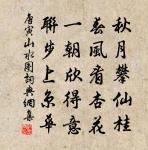 秋月攀仙桂
春風看杏花
一朝欣得意
聯步上京華
唐寅山水圖詞典網集